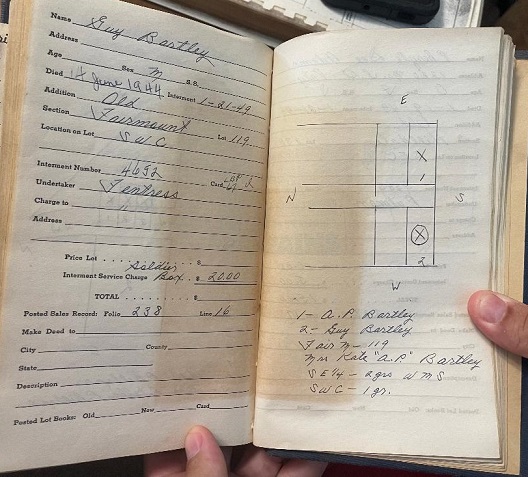 Name Guy Bartley
Address
Age Sex M S.S.
Died 14 June 1944 Interment 1-21-49
Addition Old
Section Fairmount Lot 119
Location on Lot SWC
Interment Number 4652 Card
Undertaker Fentress
Charge to
Address
Price Lot $
Soldier
Interment Service Charge Box $ 20.00
TOTAL $
Posted Sales Record: Folio 238 Line 16
Make Deed to
City County
State
Description
Posted Lot Books: Old New Card
E
X
1
N
S
X
2
W
1- A.P. Bartley
2- Guy Bartley
Fair m - 119
Mrs Kate "A.P." Bartley
SE 1/4 - 2 grs w MS
SWC - 1 gr.